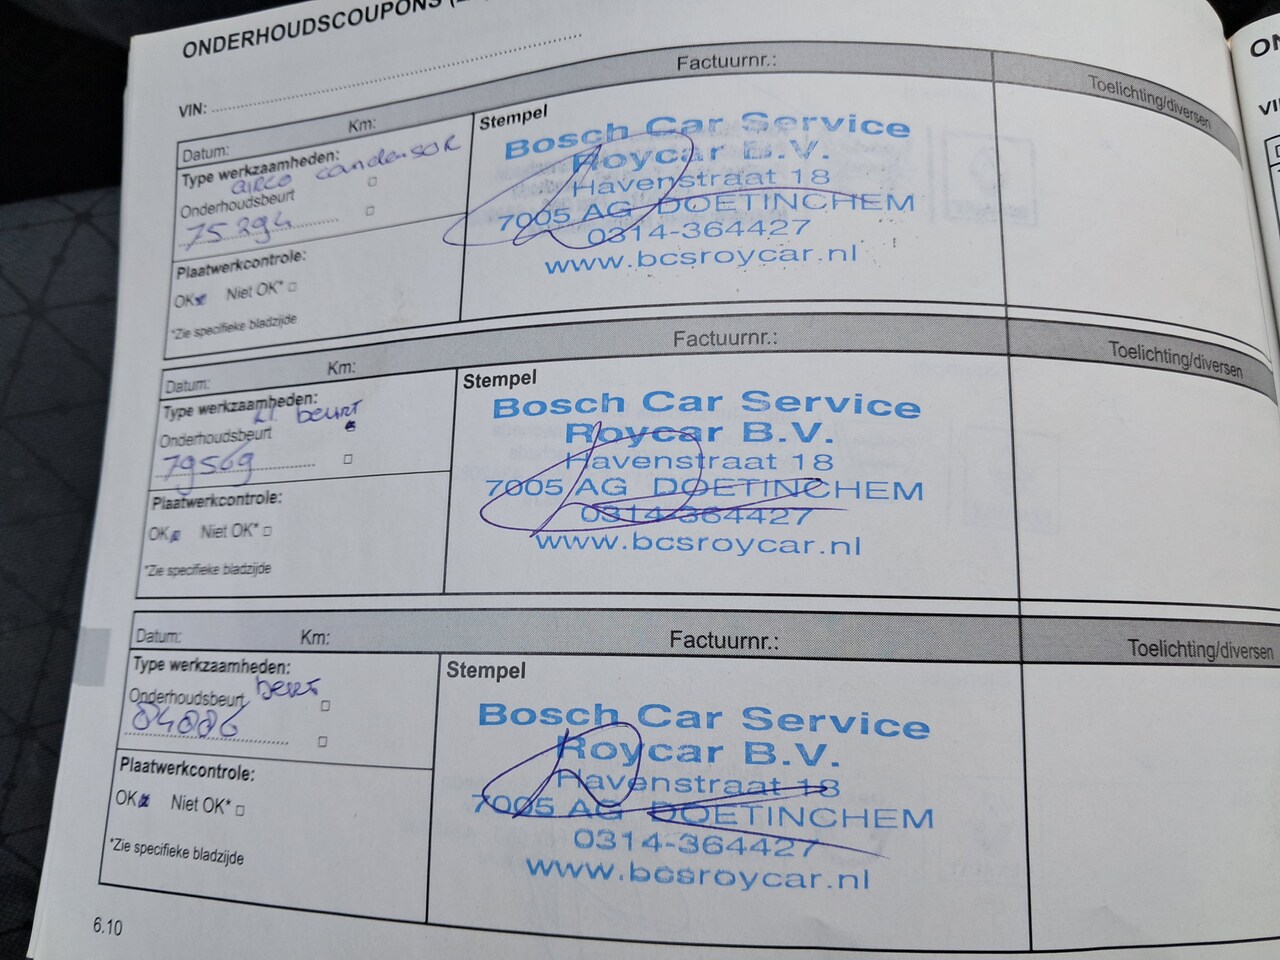 ONDERHOUDSCOUPONS
VIN:
Datum: Km: Factuurnr.: Toelichting/diversen
Type werkzaamheden: Stempel
airco condensor
Onderhoudsbeurt
75294
Plaatwerkcontrole:
OK Niet OK*
*Zie specifieke bladzijde
Bosch Car Service
Roycar B.V.
Havenstraat 18
7005 AG DOETINCHEM
0314-364427
www.bcsroycar.nl
Datum: Km: Factuurnr.: Toelichting/diversen
Type werkzaamheden: Stempel
kl. beurt
Onderhoudsbeurt
79569
Plaatwerkcontrole:
OK Niet OK*
*Zie specifieke bladzijde
Bosch Car Service
Roycar B.V.
Havenstraat 18
7005 AG DOETINCHEM
0314-364427
www.bcsroycar.nl
Datum: Km: Factuurnr.: Toelichting/diversen
Type werkzaamheden: Stempel
Onderhoudsbeurt beurt
84086
Plaatwerkcontrole:
OK Niet OK*
*Zie specifieke bladzijde
Bosch Car Service
Roycar B.V.
Havenstraat 18
7005 AG DOETINCHEM
0314-364427
www.bcsroycar.nl
6.10